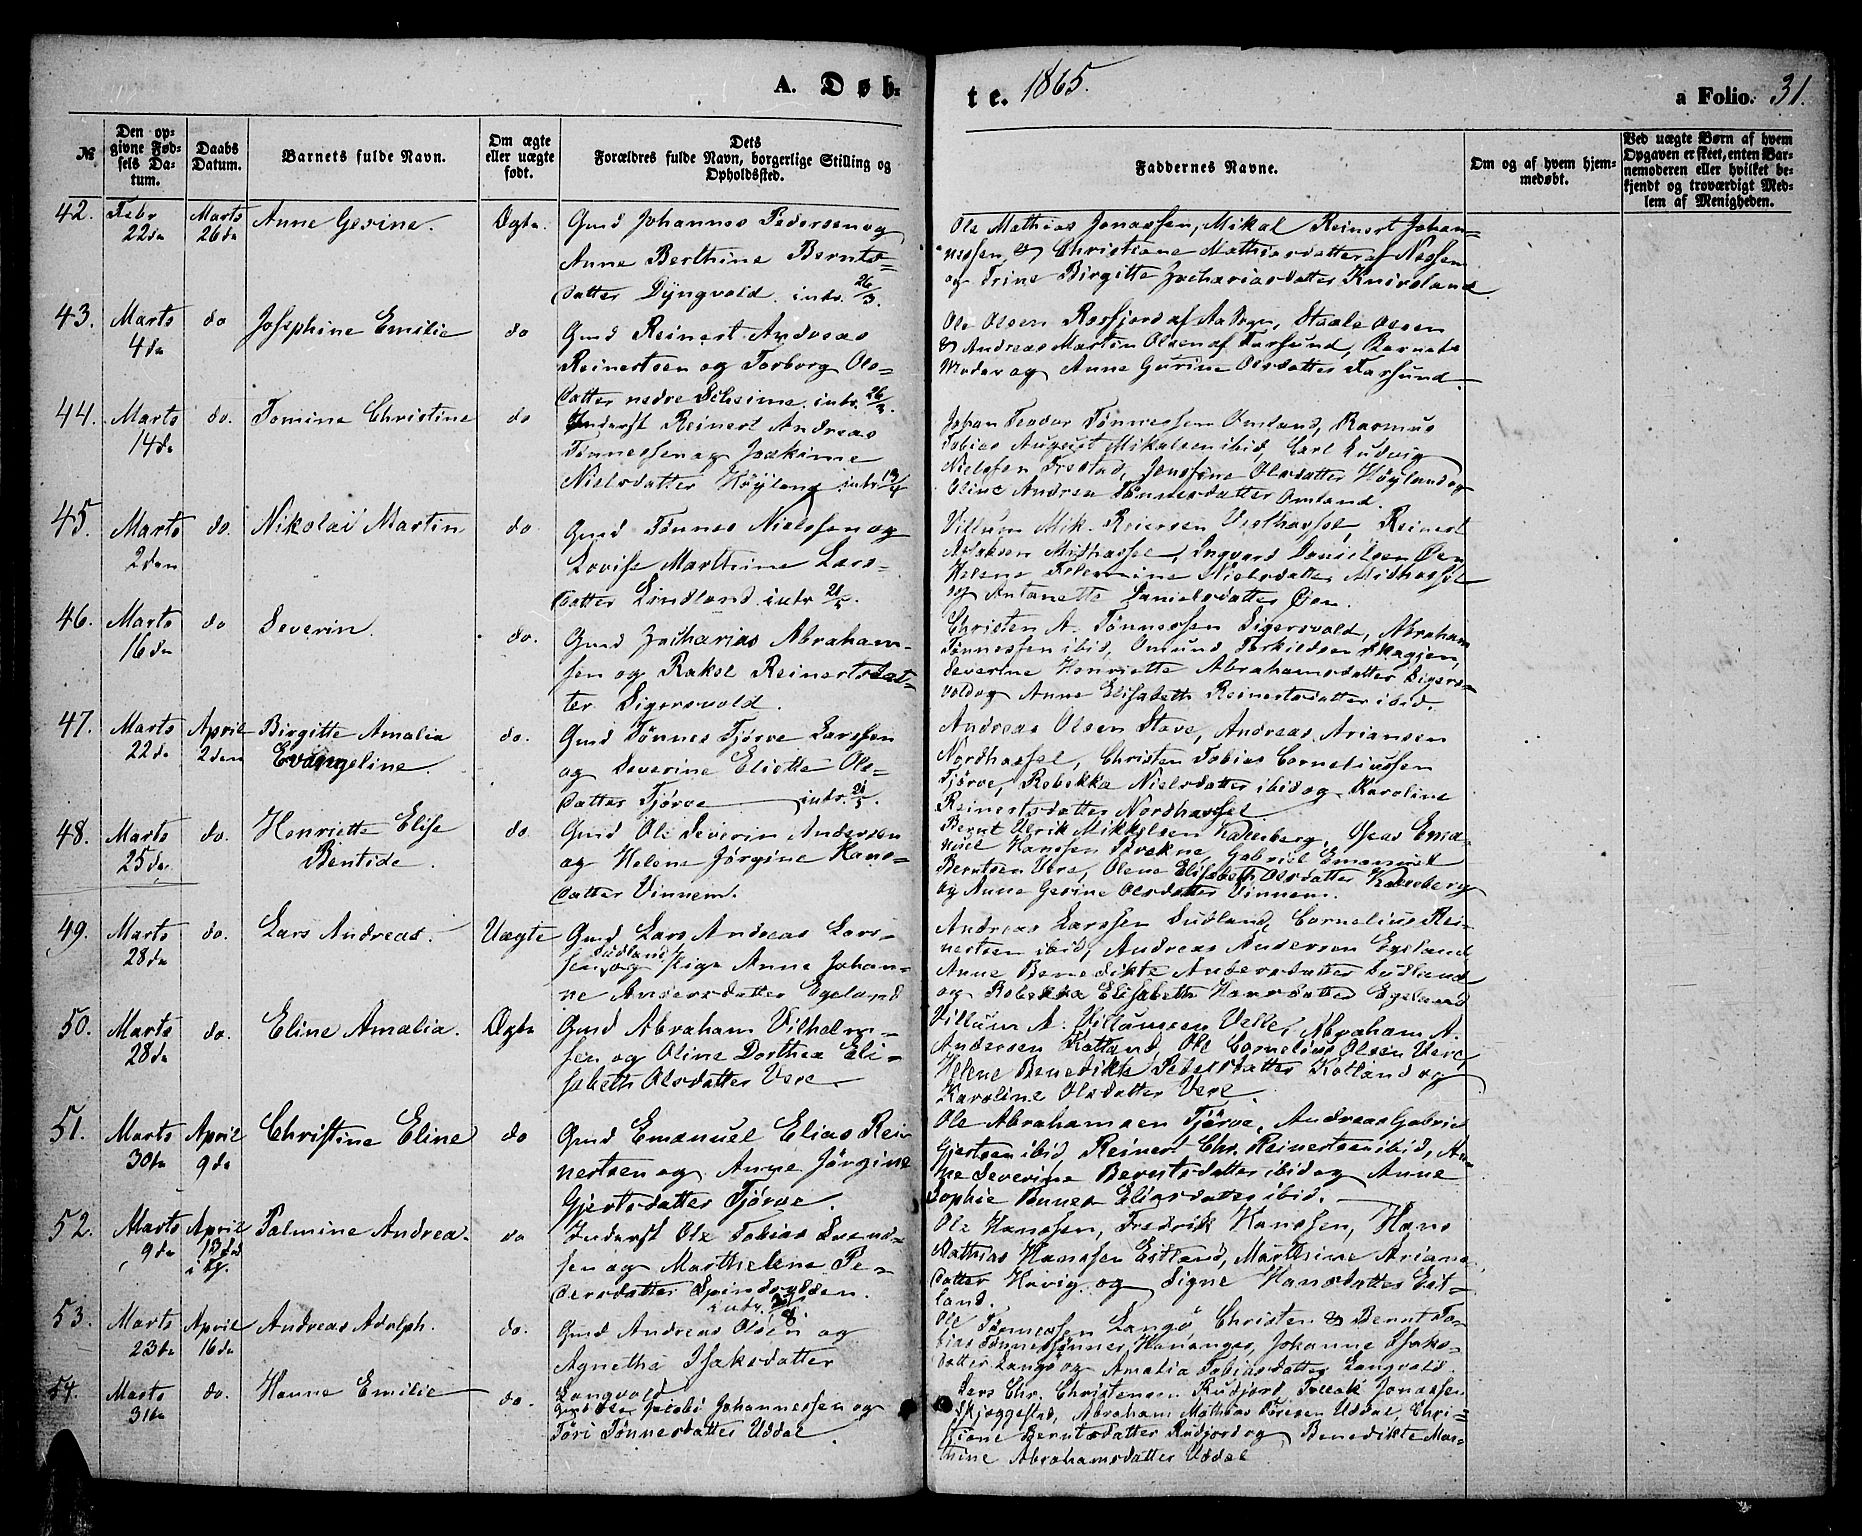 A. Døb-
te. 1865.
a Folio. 31.
№
Den op-
givne Fød-
sels Da-
tum.
Daabs
Datum.
Barnets fulde Navn.
Om ægte
eller uægte
født.
Dets
Forældres fulde Navn, borgerlige Stilling og
Opholdssted.
Faddernes Navne.
Om og af hvem hjem-
medøbt.
Ved uægte Børn af hvem
Opgaven er skeet, enten Bar-
nemoderen eller hvilket be-
kjendt og troværdigt Med-
lem af Menigheden.
42. Febr 22de Marts 26de Anne Gesine. Ægte
Gmd Johannes Pedersen og
Anne Berthine Bernts-
datter Dyngvold. intr. 26/3.
Ole Mathias Jonassen, Mikal Reinert Johan-
nessen, & Christiane Mathiasdatter af Nessen
og Trine Birgitte Zachariasdatter Knivsland.
43. Marts 4de do Josephine Emilie do
Gmd Reinert Andreas
Reinertsen og Torborg Ols-
datter nedre Skeime. intr. 26/3.
Ole Olsen Rosfjord af Aa Sogn, Staale Olsen
& Andreas Martin Olsen af Farsund, Barnets
Moder og Anne Gurine Olsdatter Farsund.
44. Marts 14de do. Tomine Christine do
Inderst Reinert Andreas
Tønnessen og Joakime
Nielsdatter Høyland intr 13/4
Johan Teodor Tønnessen Omland, Rasmus
Tobias August Mikalsen ibid, Carl Ludvig
Nielssen Frestad, Jonssine Olsdatter Høyland og
Oline Andrea Tønnesdatter Omland.
45. Marts 2den do. Nikolai Martin do
Gmd Tønnes Nielssen og
Lovise Marthine Lars-
datter Lindland. intr 21/5.
Villum Mik. Reiersen Vesthassel, Reinert
Aslaksen Midhassel, Ingvard Danielsen Øien
Helene Tolemine Nielsdatter Midhassel
og Antonette Danielsdatter Øien.
46. Marts 16de do Severin. do.
Gmd Zacharias Abraham-
sen og Rakel Reinertsdat-
ter Sigersvold.
Christen A. Tønnessen Sigersvold, Abraham
Tønnessen ibid, Omund Torkildsen Skagjen,
Severine Henriette Abrahamsdatter Sigers-
vold og Anne Elisabeth Reinertsdatter ibid.
47. Marts 22de April 2den Birgitte Amalia
Evangeline. do.
Gmd Tønnes Tjørve Larssen
og Severine Eliette Ols-
datter Tjørve intr. 21/5.
Andreas Olsen Stave, Andreas Ariansen
Nordhassel, Christen Tobias Corneliussen
Tjørve, Rebekka Nielsdatter ibid og Karoline
Reinertsdatter Nordhassel
48. Marts 25de do. Henriette Elise
Bentide. do.
Gmd Ole Severin Andersen
og Helene Jørgine Hans-
datter Vinnem.
Bernt Ulrik Mikkelsen Kalleberg, Oseas Ema-
nuel Hanssen Tvekne, Gabriel Emanuel
Berntsen Vere, Olene Elisabeth Olsdatter Kalleberg
og Anne Gesine Olsdatter Vinnem.
49. Marts 28de do. Lars Andreas. Uægte
Gmd Lars Andreas Lars-
sen Sudland, og Pige Anne Johan-
ne Andersdatter Egeland
Andreas Larssen Sudland, Cornelius Rei-
nertsen ibid, Andreas Andersen Egeland
Anne Benedikte Andersdatter Sudland
og Rebekka Elisabeth Hansdatter Egeland
50. Marts 28de do. Eline Amalia. Ægte
Gmd Abraham Vilhelm-
sen og Oline Dorthea Eli-
sabeth Olsdatter Vere
Villum A. Villumsen Velle, Abraham A.
Andersen Kotland, Ole Cornelius Olsen Vere,
Helene Benedikte Pedersdatter Kotland og
Karoline Olsdatter Vere.
51. Marts 30te April 9de Christine Eline do
Gmd Emanuel Elias Rei-
nertsen og Anne Jørgine
Gjertsdatter Tjørve.
Ole Abrahamsen Tjørve, Andreas Gabriel
Gjertsen ibid, Reinert Chr. Reinertsen ibid, An-
ne Severine Berntsdatter ibid og Anne
Sophie Eliasdatter ibid.
52. Marts 9de April 13de i Kj. Palmine Andrea. do
Inderst Ole Tobias Svend-
sen og Marthelene Pe-
dersdatter Spindsodden.
Ole Hanssen, Fredrik Hanssen, Hans
Mathias Hanssen Estland, Marthine Arians-
datter Havig og Signe Hansdatter Est-
land.
53. Marts 23de April 16de Andreas Adolph. do.
Gmd Andreas Olsen og
Agnetha Isaksdatter
Langvold
Ole Tønnessen Langø Christen & Bernt To-
bias Tønnessønner, Hananger, Johanne Isaks-
datter Langø og Amalia Tobiasdatter Langvold.
54. Marts 31te do. Hanne Emilie do.
Gmd Ole Jacob Johannessen og
Tøri Tønnesdatter Uddal
Lars Chr. Christensen Rudjord, Tollak Jonassen
Skjeggestad, Abraham Mathias Tøresen Uddal, Chri-
stiane Berntsdatter Rudjord og Benedikte Mar-
thine Abrahamsdatter Uddal